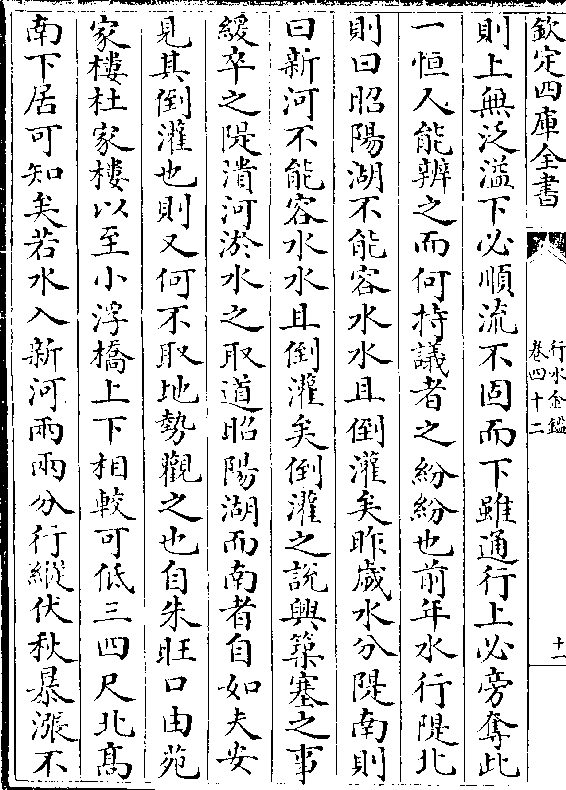 欽定四庫全書
行水金鑑
卷四十二
十一
則上無泛溢下必順流不固而下雖通行上必旁奪此
一恒人能辨之而何持議者之紛紛也前年水行隄北
則曰昭陽湖不能容水水且倒灌矣昨歲水分隄南則
曰新河不能容水水且倒灌矣倒灌之説興築塞之事
緩卒之隄潰河淤水之取道昭陽湖而南者自如夫安
見其倒灌也則又何不取地勢觀之也自朱旺口由苑
家樓杜家樓以至小浮橋上下相較可低三四尺北髙
南下居可知矣若水入新河兩兩分行縱伏秋暴漲不